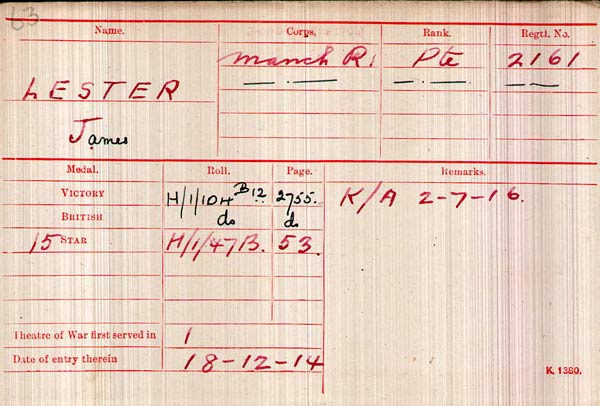 63
Name. Corps, Rank. Regtl. No.
Manch R. Pte 2161
LESTER
James
Medal. Roll. Page. Remarks.
VICTORY H/1/104 B12 2755. K/A 2-7-16.
BRITISH do do
15 STAR H/1/47B. 53.
Theatre of War first served in 1
Date of entry therein 18-12-14
K. 1380.